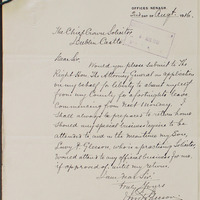 OFFICES: NENAGH
Augt. 1916.
The Chief Crown Solicitor
Dublin Castle
Dear Sir
Would you please submit to the
Right Hon. The Attorney General an application
on my behalf for liberty to absent myself
from my County for a fortnight's leave
Commencing from next Monday. I
shall always be prepared to return home
should any special business require to be
attended to and in the meantime my Son,
A. Gleeson, who is a practising Solicitor,
would attend to any official business for me,
if approved of, until my return.
I am Dear Sir,
Yours
Gleeson